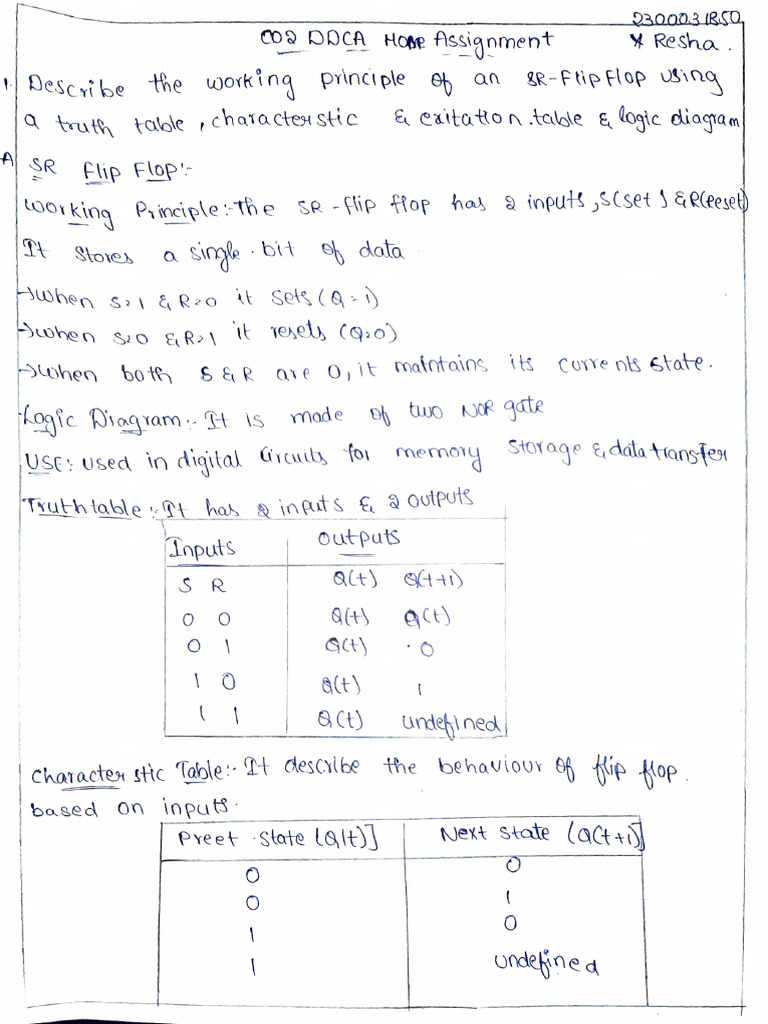 2300031850
CO2 DDCA Home Assignment
* Resha.
1. Describe the working principle of an SR-Flip Flop using
a truth table, characteristic & exitation table & logic diagram
A SR Flip Flop:-
Working Principle:- The SR-flip flop has 2 inputs, S(set) & R(Reset)
It stores a single bit of data
→ when S=1 & R=0 it sets (Q=1)
→ when S=0 & R=1 it resets (Q=0)
→ when both S & R are 0, it maintains its currents state.
Logic Diagram:- It is made of two NOR gate
USE: used in digital circuits for memory storage & data transfer
Truth table:- It has 2 inputs & 2 outputs
Inputs outputs
S R Q(t) Q(t+1)
0 0 Q(t) Q(t)
0 1 Q(t) 0
1 0 Q(t) 1
1 1 Q(t) undefined
Characterstic Table:- It describe the behaviour of flip flop.
based on inputs.
Preet state (Q(t)] Next state (Q(t+1)]
0 0
0 1
1 0
1 undefined